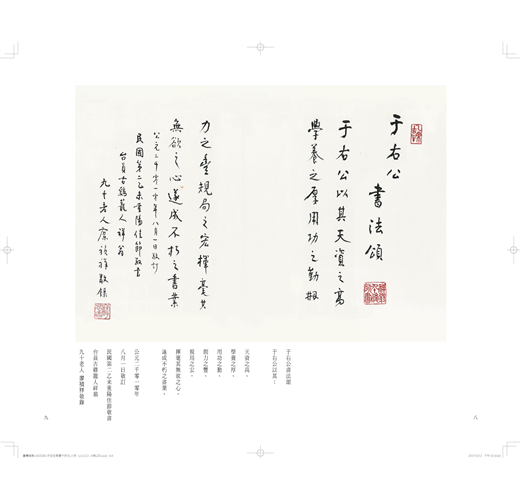 于右公書法頌
于右公以其天資之高
學養之厚用功之勤眼
力之豐規局之宏揮毫其
無欲之心遂成不朽之書業
公元二千零一零年八月一日敬訂
民國第二乙未重陽佳節敬書
台員古鷄籠人祥翁
九十老人廖禎祥敬錄
于右公書法頌
于右公以其：
天資之高，
學養之厚，
用功之勤，
眼力之豐，
規局之宏，
揮毫其無欲之心，
遂成不朽之書業。
公元二千零一零年
八月一日敬訂
民國第二乙未重陽佳節敬書
台員古雞籠人祥翁
九十老人 廖禎祥敬錄
八
九